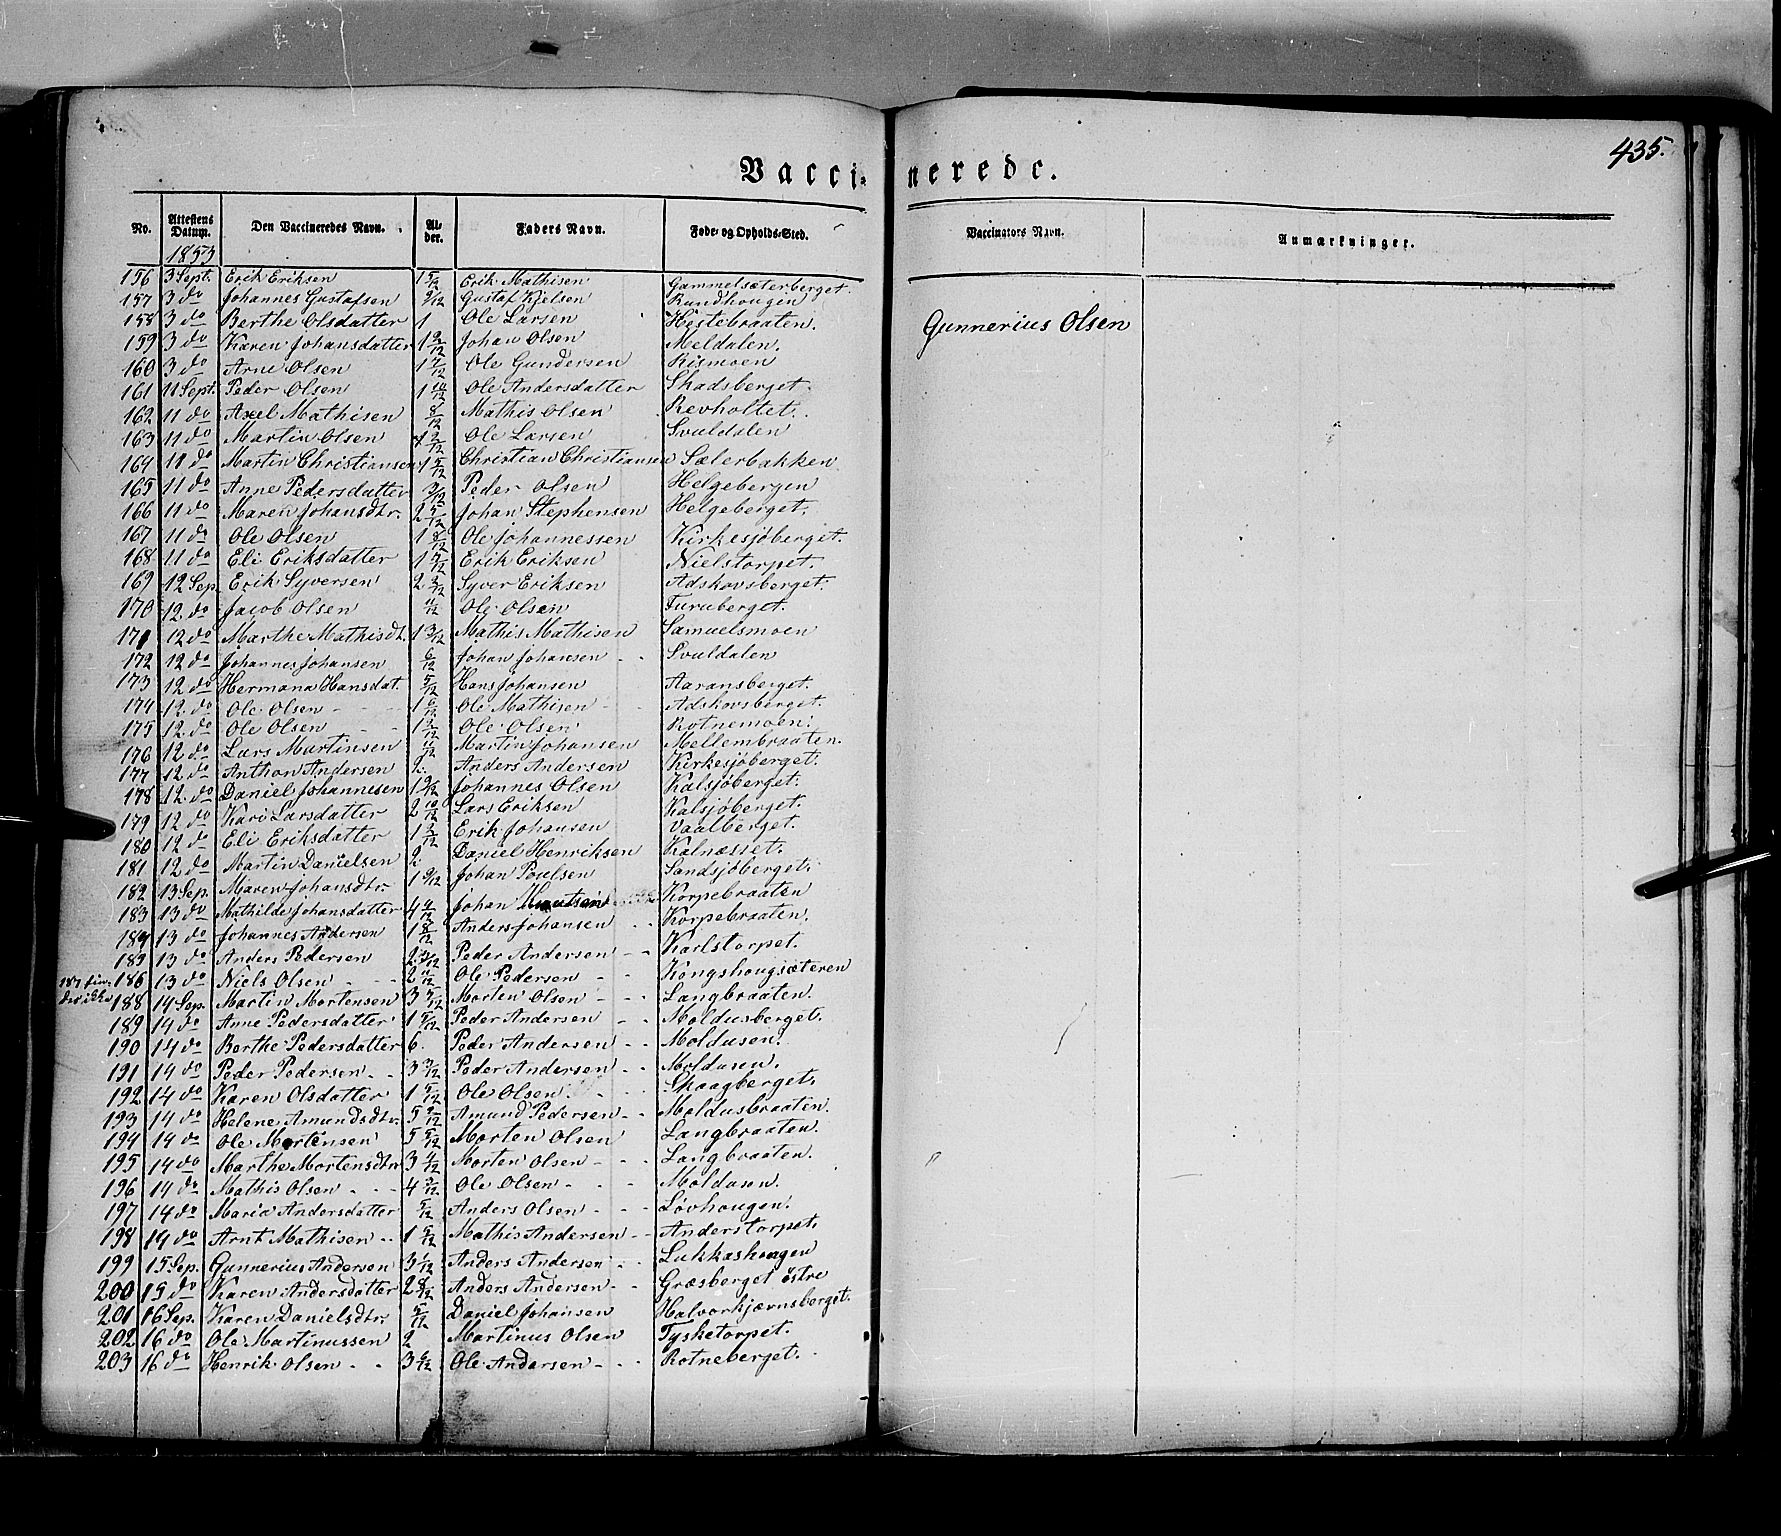 435.
Vaccinerede.
No. Attestens Datum. Den Vaccineredes Navn. Alder. Faders Navn. Føde- og Opholds-Sted. Vaccinators Navn. Anmærkninger.
1853
156 3 Sept. Erik Eriksen 1 5/12 Erik Mathisen Gammelsæterberget.
157 3 do Johannes Gustafsen 9/12 Gustaf Kjelsen Rundhougen
158 3 do Berthe Olsdatter 1 Ole Larsen Hestebraaten. Gunnerius Olsen
159 3 do Karen Johansdatter 1 9/12 Johan Olsen Meldalen.
160 3 do Arne Olsen 1 7/12 Ole Gundersen Rismoen
161 11 Sept. Peder Olsen 1 10/12 Ole Andersdatter Skadsberget.
162 11 do Axel Mathisen 8/12 Mathis Olsen Revholtet.
163 11 do Martin Olsen 2/12 Ole Larsen Svuldalen
164 11 do Martin Christiansen 1 5/12 Christian Christiansen Sæterbakken
165 11 do Anne Pedersdatter 3/12 Peder Olsen Helgebergen
166 11 do Maren Johansdtr. 2 5/12 Johan Stephensen Helgeberget.
167 11 do Ole Olsen 1 8/12 Ole Johannessen Kirkesjøberget.
168 11 do Eli Eriksdatter 1 7/12 Erik Eriksen Nielstorpet.
169 12 Sep. Erik Syversen 2 2/12 Syver Eriksen Adskovsberget.
170 12 do Jacob Olsen 11/12 Ole Olsen Furuberget.
171 12 do Marthe Mathisdt. 1 3/12 Mathis Mathisen Samuelsmoen
172 12 do Johannes Johansen 6/12 Johan Johansen - - Svuldalen
173 12 do Hermana Hansdat. 5/12 Hans Johansen Aaransberget.
174 12 do Ole Olsen - - 1 6/12 Ole Mathisen - - Adskovsberget.
175 12 do Ole Olsen - - 1 2/12 Ole Olsen Rotnemoen.
176 12 do Lars Martinsen 11/12 Martin Johansen Mellembraaten.
177 12 do Anthon Andersen 2. Anders Andersen Kirkesjøberget.
178 12 do Daniel Johannesen 1 9/12 Johannes Olsen Kalsjøberget.
179 12 do Kari Larsdatter 2 10/12 Lars Eriksen Kalsjøberget.
180 12 do Eli Eriksdatter 1 2/12 Erik Johansen Vaalberget.
181 12 do Martin Danielsen 2 Daniel Henriksen Kalnæsset.
182 13 Sep. Maren Johansdtr. 1 9/12 Johan Poulsen Sandsjøberget.
183 13 do Mathilde Johansdatter 4 4/12 Johan Knutsen Korpebraaten
184 13 do Johannes Andersen 1 8/12 Anders Johansen - - Korpebraaten.
185 13 do Anders Pedersen 2 3/12 Peder Andersen - - Karlstorpet.
187 fin- 186 13 do Niels Olsen - - 2 11/12 Ole Pedersen - - Kongshougsæteren
des ikke 188 14 Sep. Martin Mortensen 3 7/12 Morten Olsen - - - Langbraaten.
189 14 do Anne Pedersdatter 1 5/12 Peder Andersen - - Moldusberget.
190 14 do Berthe Pedersdatter 6. Peder Andersen - - Moldusen.
191 14 do Peder Pedersen - - 3 3/12 Peder Andersen - - Moldusen.
192 14 do Karen Olsdatter 1 5/12 Ole Olsen. - - - Skaagberget.
193 14 do Helene Amundsdtr. 5 9/12 Amund Pedersen - - Moldusbraaten.
194 14 do Ole Mortensen 5 5/12 Morten Olsen Langbraaten.
195 14 do Marthe Mortensdtr 3 4/12 Morten Olsen - - - Langbraaten.
196 14 do Mathis Olsen - - - 4 3/12 Ole Olsen - - - Moldusen.
197 14 do Maria Andersdatter 5/12 Anders Olsen - - - Løvhougen.
198 14 do Arnt Mathisen - - 1 5/12 Mathis Andersen - - Anderstorpet.
199 15 Sep. Gunnerius Andersen 3 1/12 Anders Andersen - - Lukkashougen
200 15 do Karen Andersdatter 2 8/12 Anders Andersen - - Græsberget østre
201 16 Sep. Karen Danielsdtr. 5/12 Daniel Johansen Halvorkjærnsberget.
202 16 do Ole Martinussen 2 Martinus Olsen Tysketorpet.
203 16 do Henrik Olsen - - 3 6/12 Ole Andersen - - - Rotneberget.